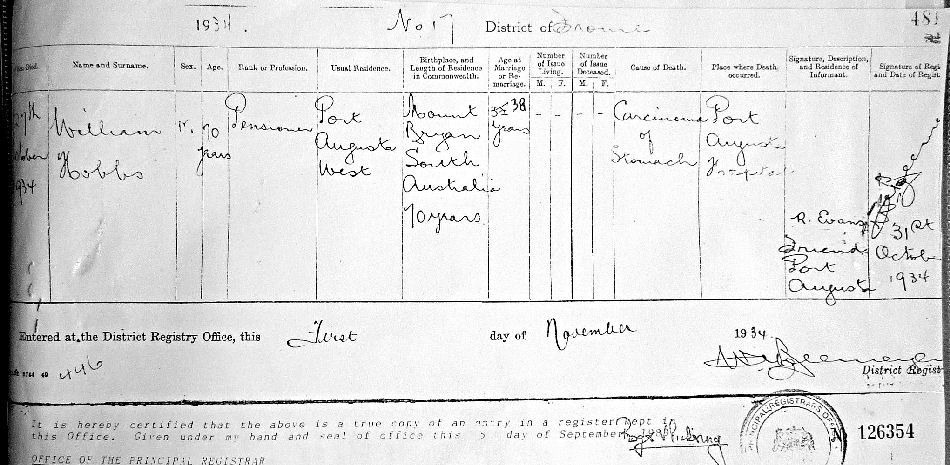 1934. No. 17 District of Frome 481
When Died. Name and Surname. Sex. Age. Rank or Profession. Usual Residence. Birthplace, and Length of Residence in Commonwealth. Age at Marriage or Re-marriage. Number of Issue Living. M. F. Number of Issue Deceased. M. F. Cause of Death. Place where Death occurred. Signature, Description, and Residence of Informant. Signature of Regi and Date of Regist
27th
October
1934
William
Hobbs
M.
70
years
Pensioner
Port
Augusta
West
Mount
Bryan
South
Australia
70 years
38
years
- - - -
Carcinoma
of
Stomach
Port
Augusta
Hospital
R. Evans
Friend
Port
Augusta
31st
Octobe
1934
Entered at the District Registry Office, this First day of November 1934.
446
District Regist
It is hereby certified that the above is a true copy of an entry in a register kept in
this Office. Given under my hand and seal of office this 5 day of September
OFFICE OF THE PRINCIPAL REGISTRAR
PRINCIPAL REGISTRARS OFFICE
126354